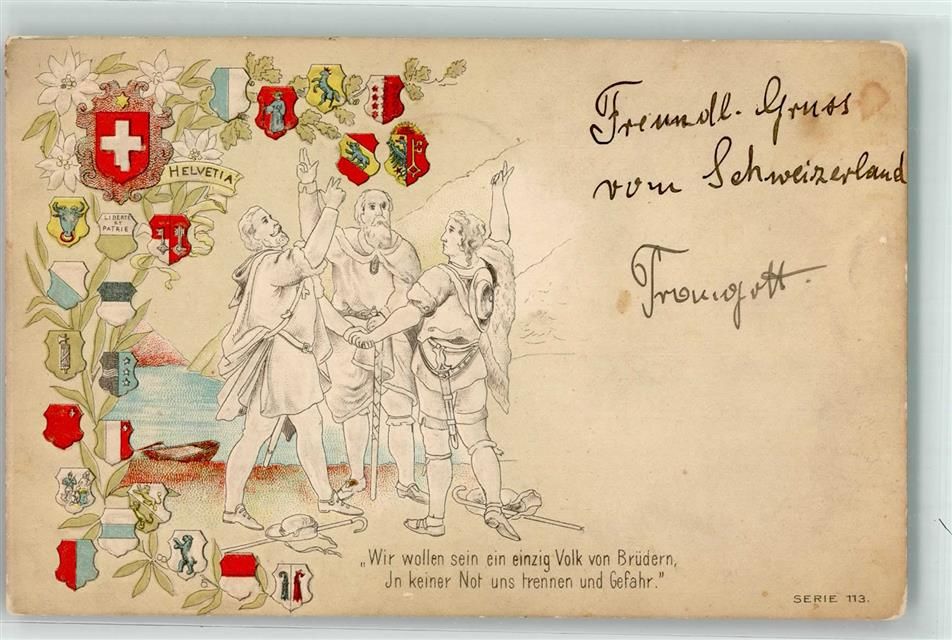 Freundl. Gruss
vom Schweizerland
HELVETIA
LIBERTÉ
ET
PATRIE
„Wir wollen sein ein einzig Volk von Brüdern,
Jn keiner Not uns trennen und Gefahr."
SERIE 113.